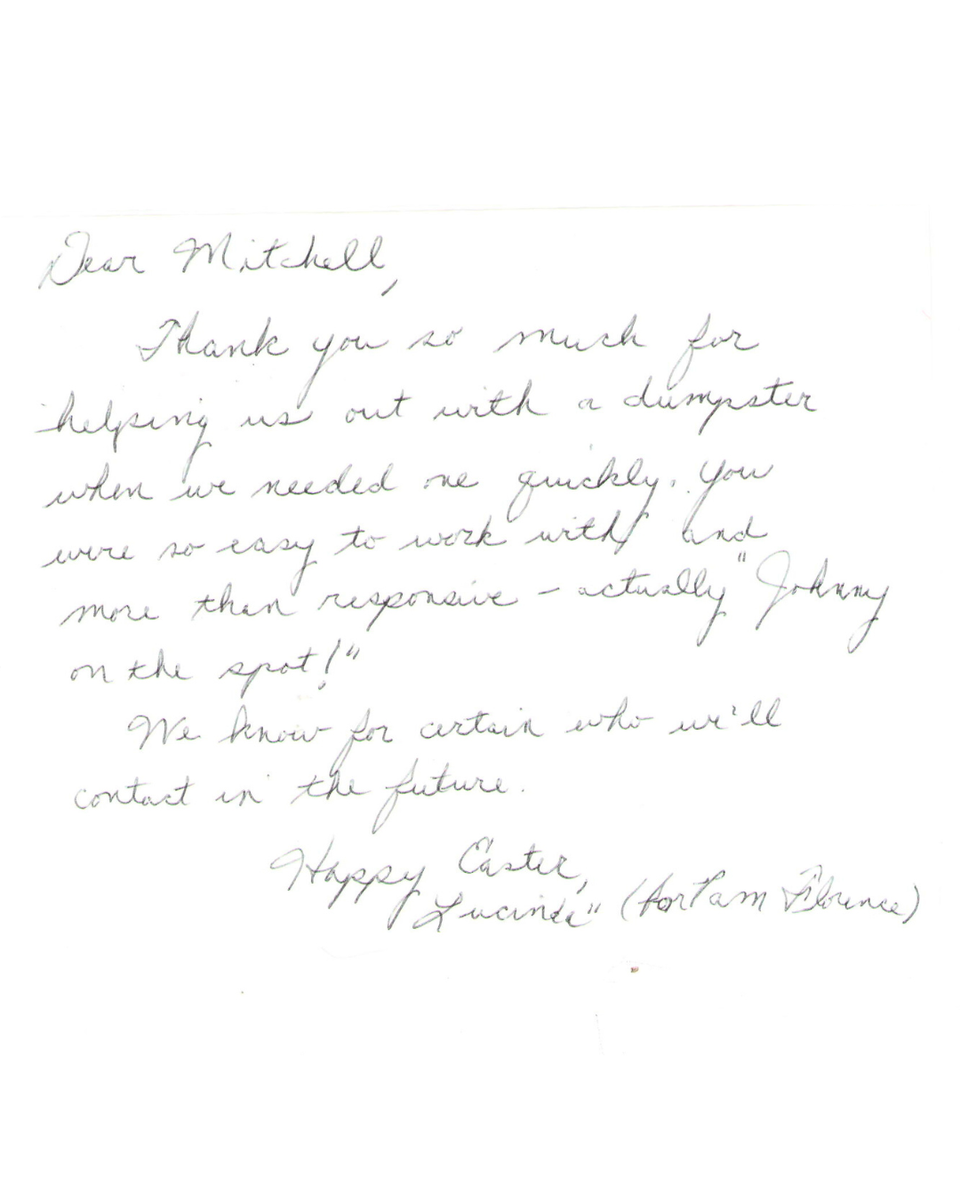 Dear Mitchell,
Thank you so much for
helping us out with a dumpster
when we needed one quickly. You
were so easy to work with and
more than responsive - actually "Johnny
on the spot!"
We know for certain who we'll
contact in the future.
Happy Easter,
Lucinda" (for Pam Florence)